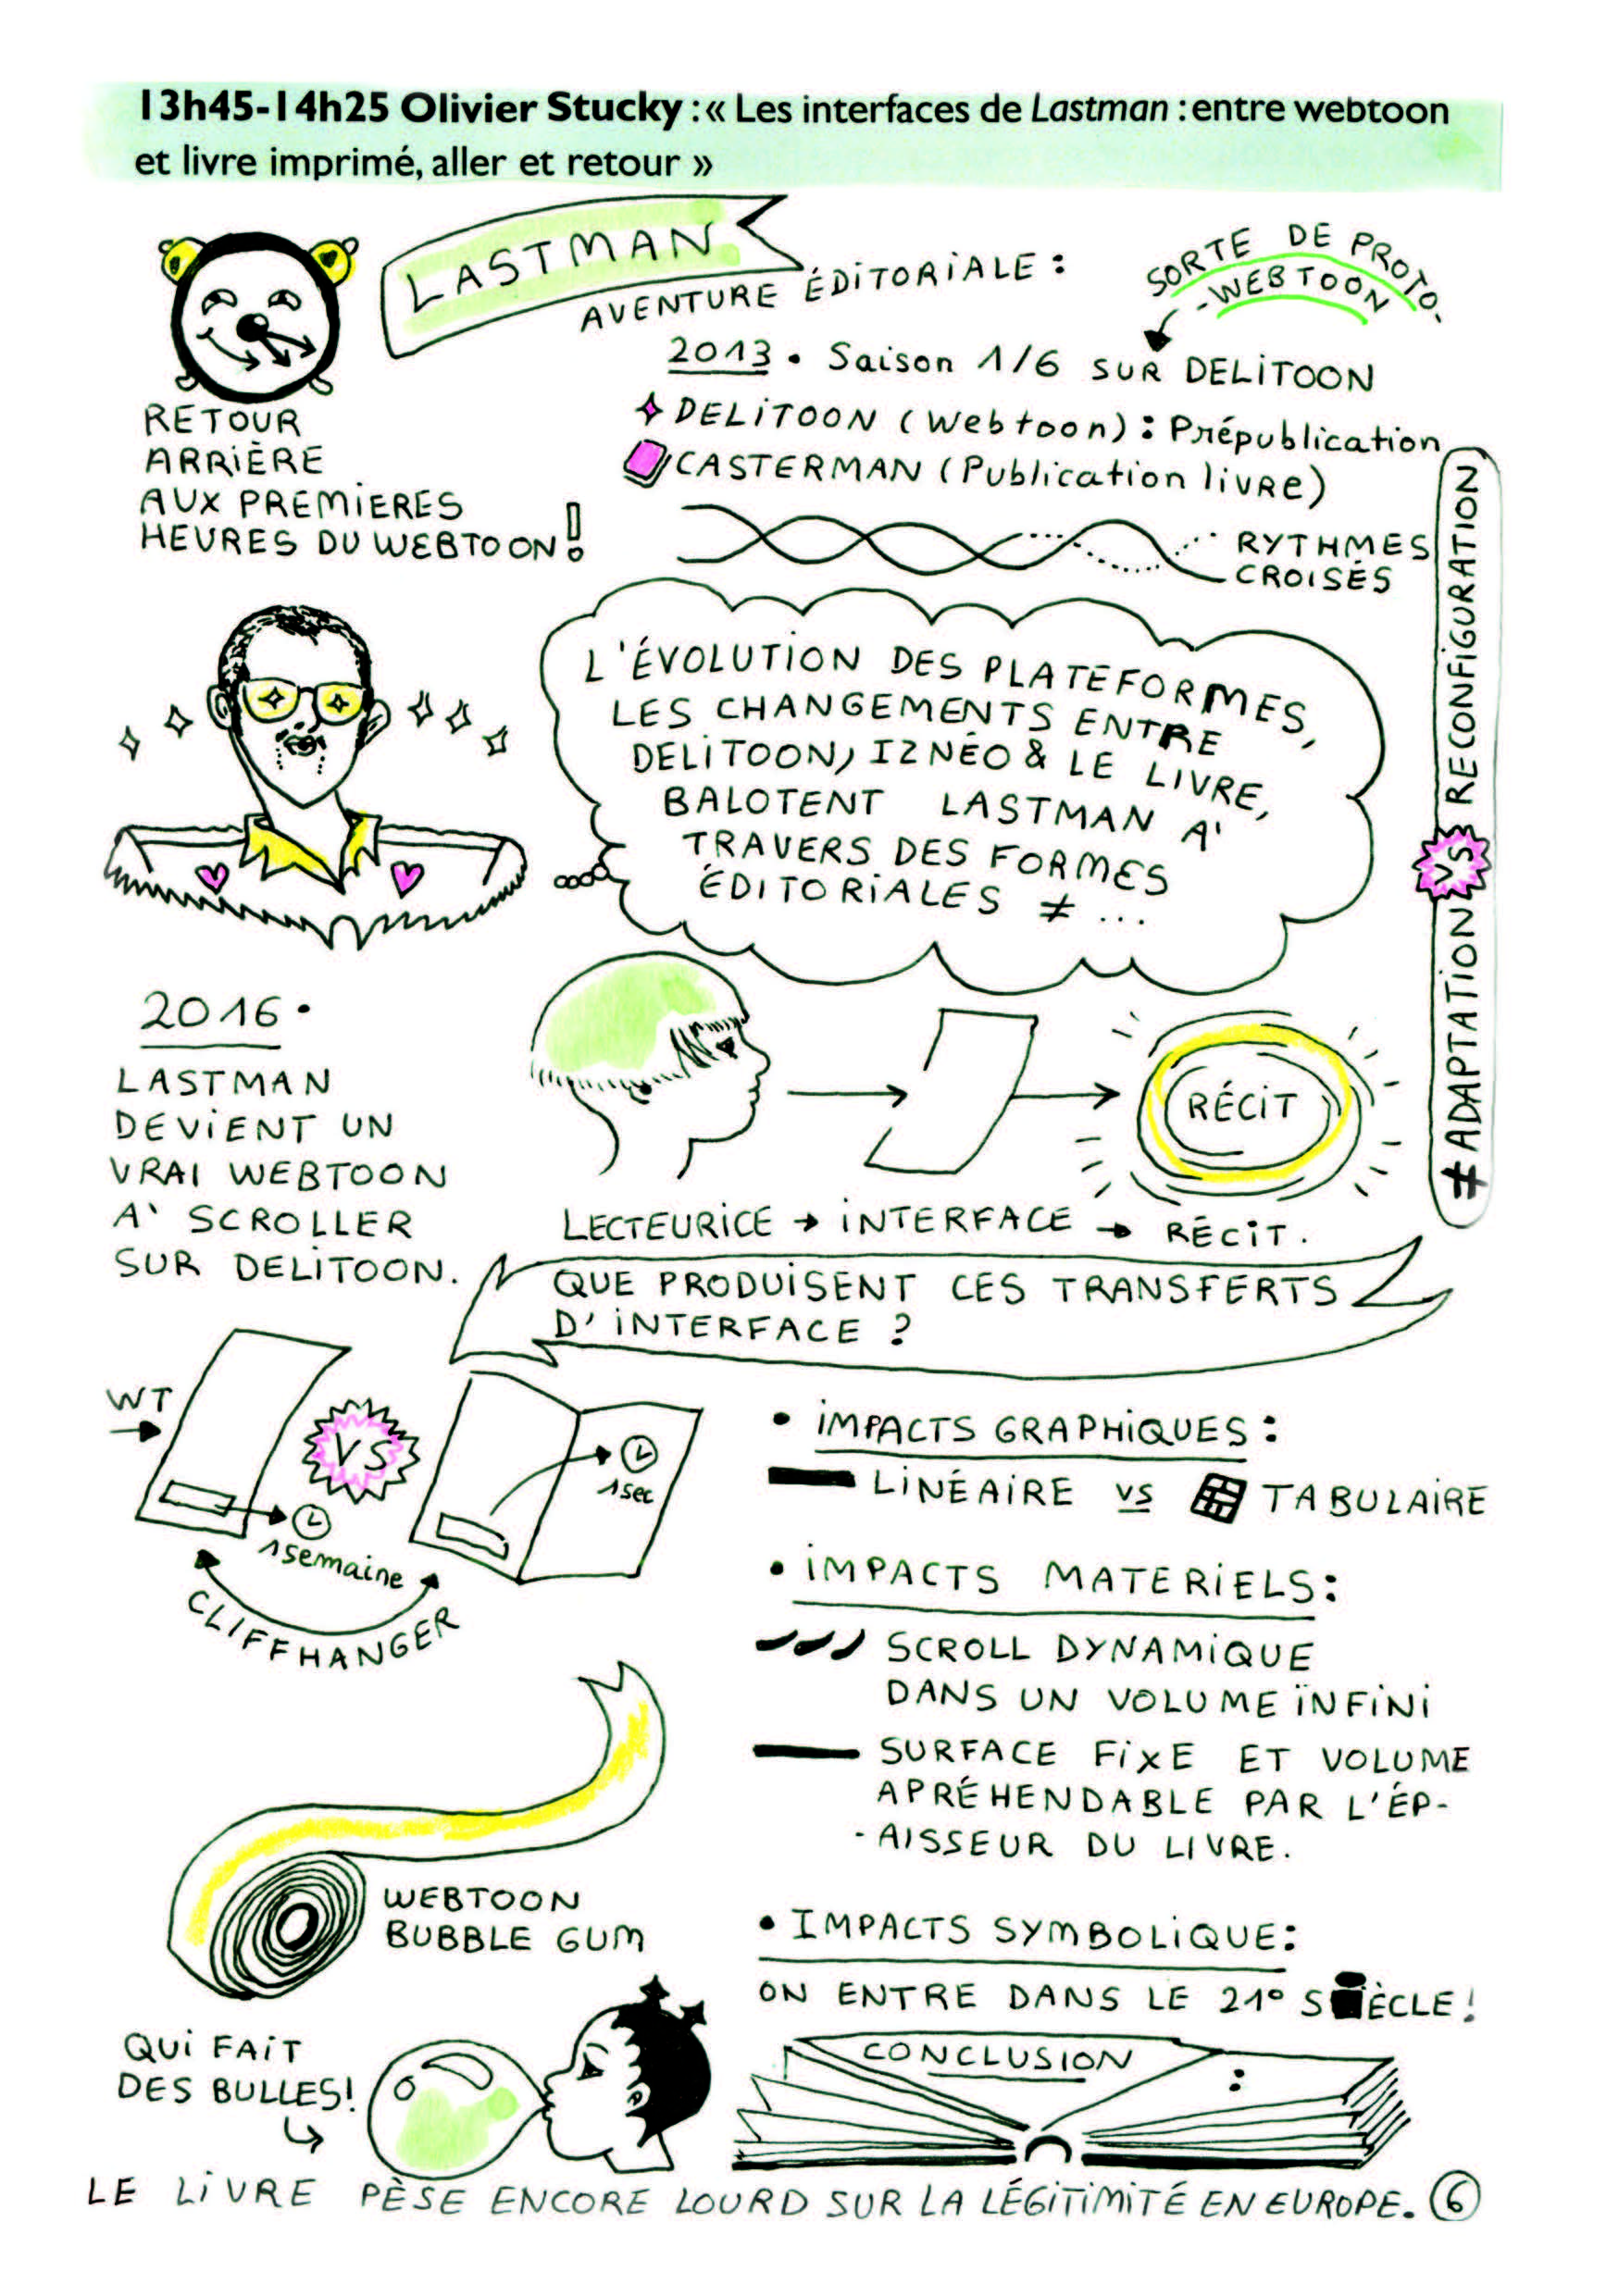 13h45-14h25 Olivier Stucky : « Les interfaces de Lastman : entre webtoon
et livre imprimé, aller et retour »
LASTMAN
AVENTURE ÉDITORIALE :
SORTE DE PROTO-
-WEBTOON
2013 • Saison 1/6 SUR DELITOON
DELITOON (Webtoon) : Prépublication
CASTERMAN (Publication livre)
RYTHMES
CROISÉS
RETOUR
ARRIÈRE
AUX PREMIERES
HEURES DU WEBTOON !
L'ÉVOLUTION DES PLATEFORMES,
LES CHANGEMENTS ENTRE
DELITOON, IZNÉO & LE LIVRE,
BALOTENT LASTMAN À
TRAVERS DES FORMES
ÉDITORIALES ≠ ...
≠ ADAPTATION VS RECONFIGURATION
2016 •
LASTMAN
DEVIENT UN
VRAI WEBTOON
À SCROLLER
SUR DELITOON.
RÉCIT
LECTEURICE → INTERFACE → RÉCIT.
QUE PRODUISENT CES TRANSFERTS
D'INTERFACE ?
WT
VS
1 semaine
1 sec
CLIFFHANGER
• IMPACTS GRAPHIQUES :
LINÉAIRE VS TABULAIRE
• IMPACTS MATERIELS :
SCROLL DYNAMIQUE
DANS UN VOLUME ÏNFINI
SURFACE FIXE ET VOLUME
APRÉHENDABLE PAR L'ÉP-
-AISSEUR DU LIVRE.
WEBTOON
BUBBLE GUM
QUI FAIT
DES BULLES !
• IMPACTS SYMBOLIQUE :
ON ENTRE DANS LE 21° SIÈCLE !
CONCLUSION :
LE LIVRE PÈSE ENCORE LOURD SUR LA LÉGITIMITÉ EN EUROPE. 6